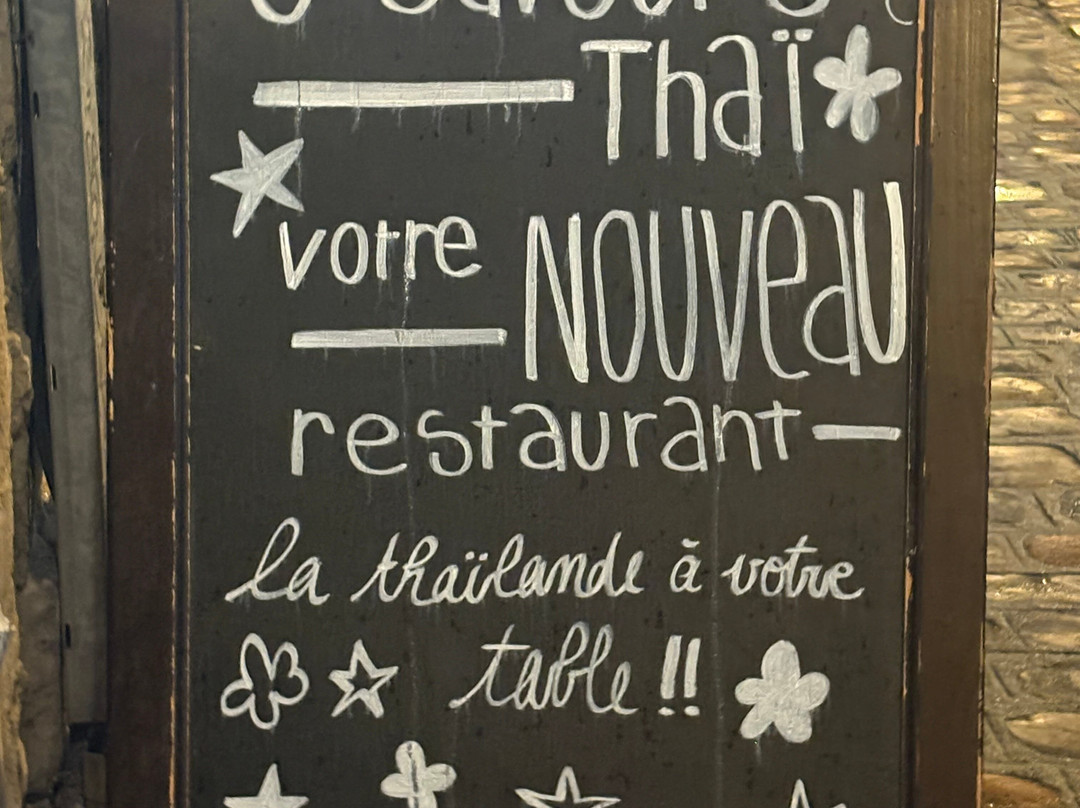 Thaï
votre NOUVEAU
restaurant
la thaïlande à votre
table !!